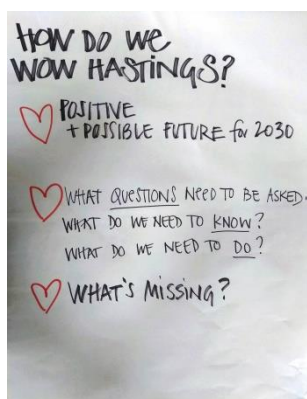 HOW DO WE
WOW HASTINGS?
POSITIVE
+ POSSIBLE FUTURE for 2030
WHAT QUESTIONS NEED TO BE ASKED.
WHAT DO WE NEED TO KNOW?
WHAT DO WE NEED TO DO?
WHAT'S MISSING?